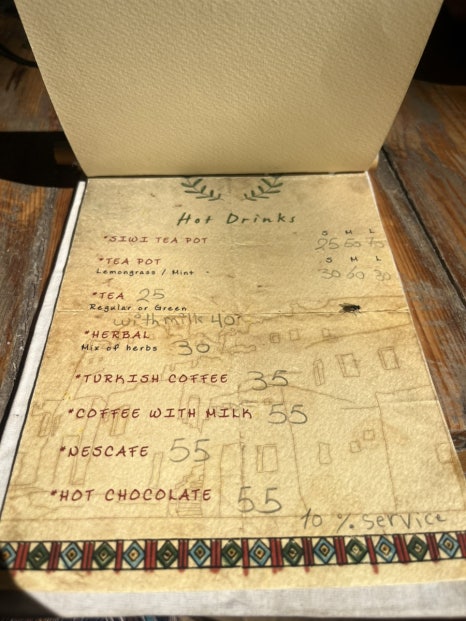 Hot Drinks
S M L
*SIWI TEA POT 25 50 75
S M L
*TEA POT 30 60
Lemongrass / Mint
*TEA 25
Regular or Green
with milk 40
*HERBAL
Mix of herbs 30
*TURKISH COFFEE 35
*COFFEE WITH MILK 55
*NESCAFE 55
*HOT CHOCOLATE 55
10 % service